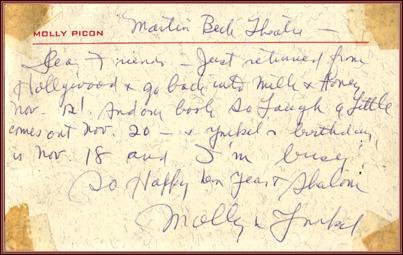 MOLLY PICON
Martin Beck Theatre —
Dear Friends — Just returned from
Hollywood & go back into Milk & Honey
Nov. 12! And our book So Laugh a Little
comes out Nov. 20 — & Yonkel's birthday
is Nov. 18 and I'm busy!
So Happy New Year & Shalom
Molly & Yonkel